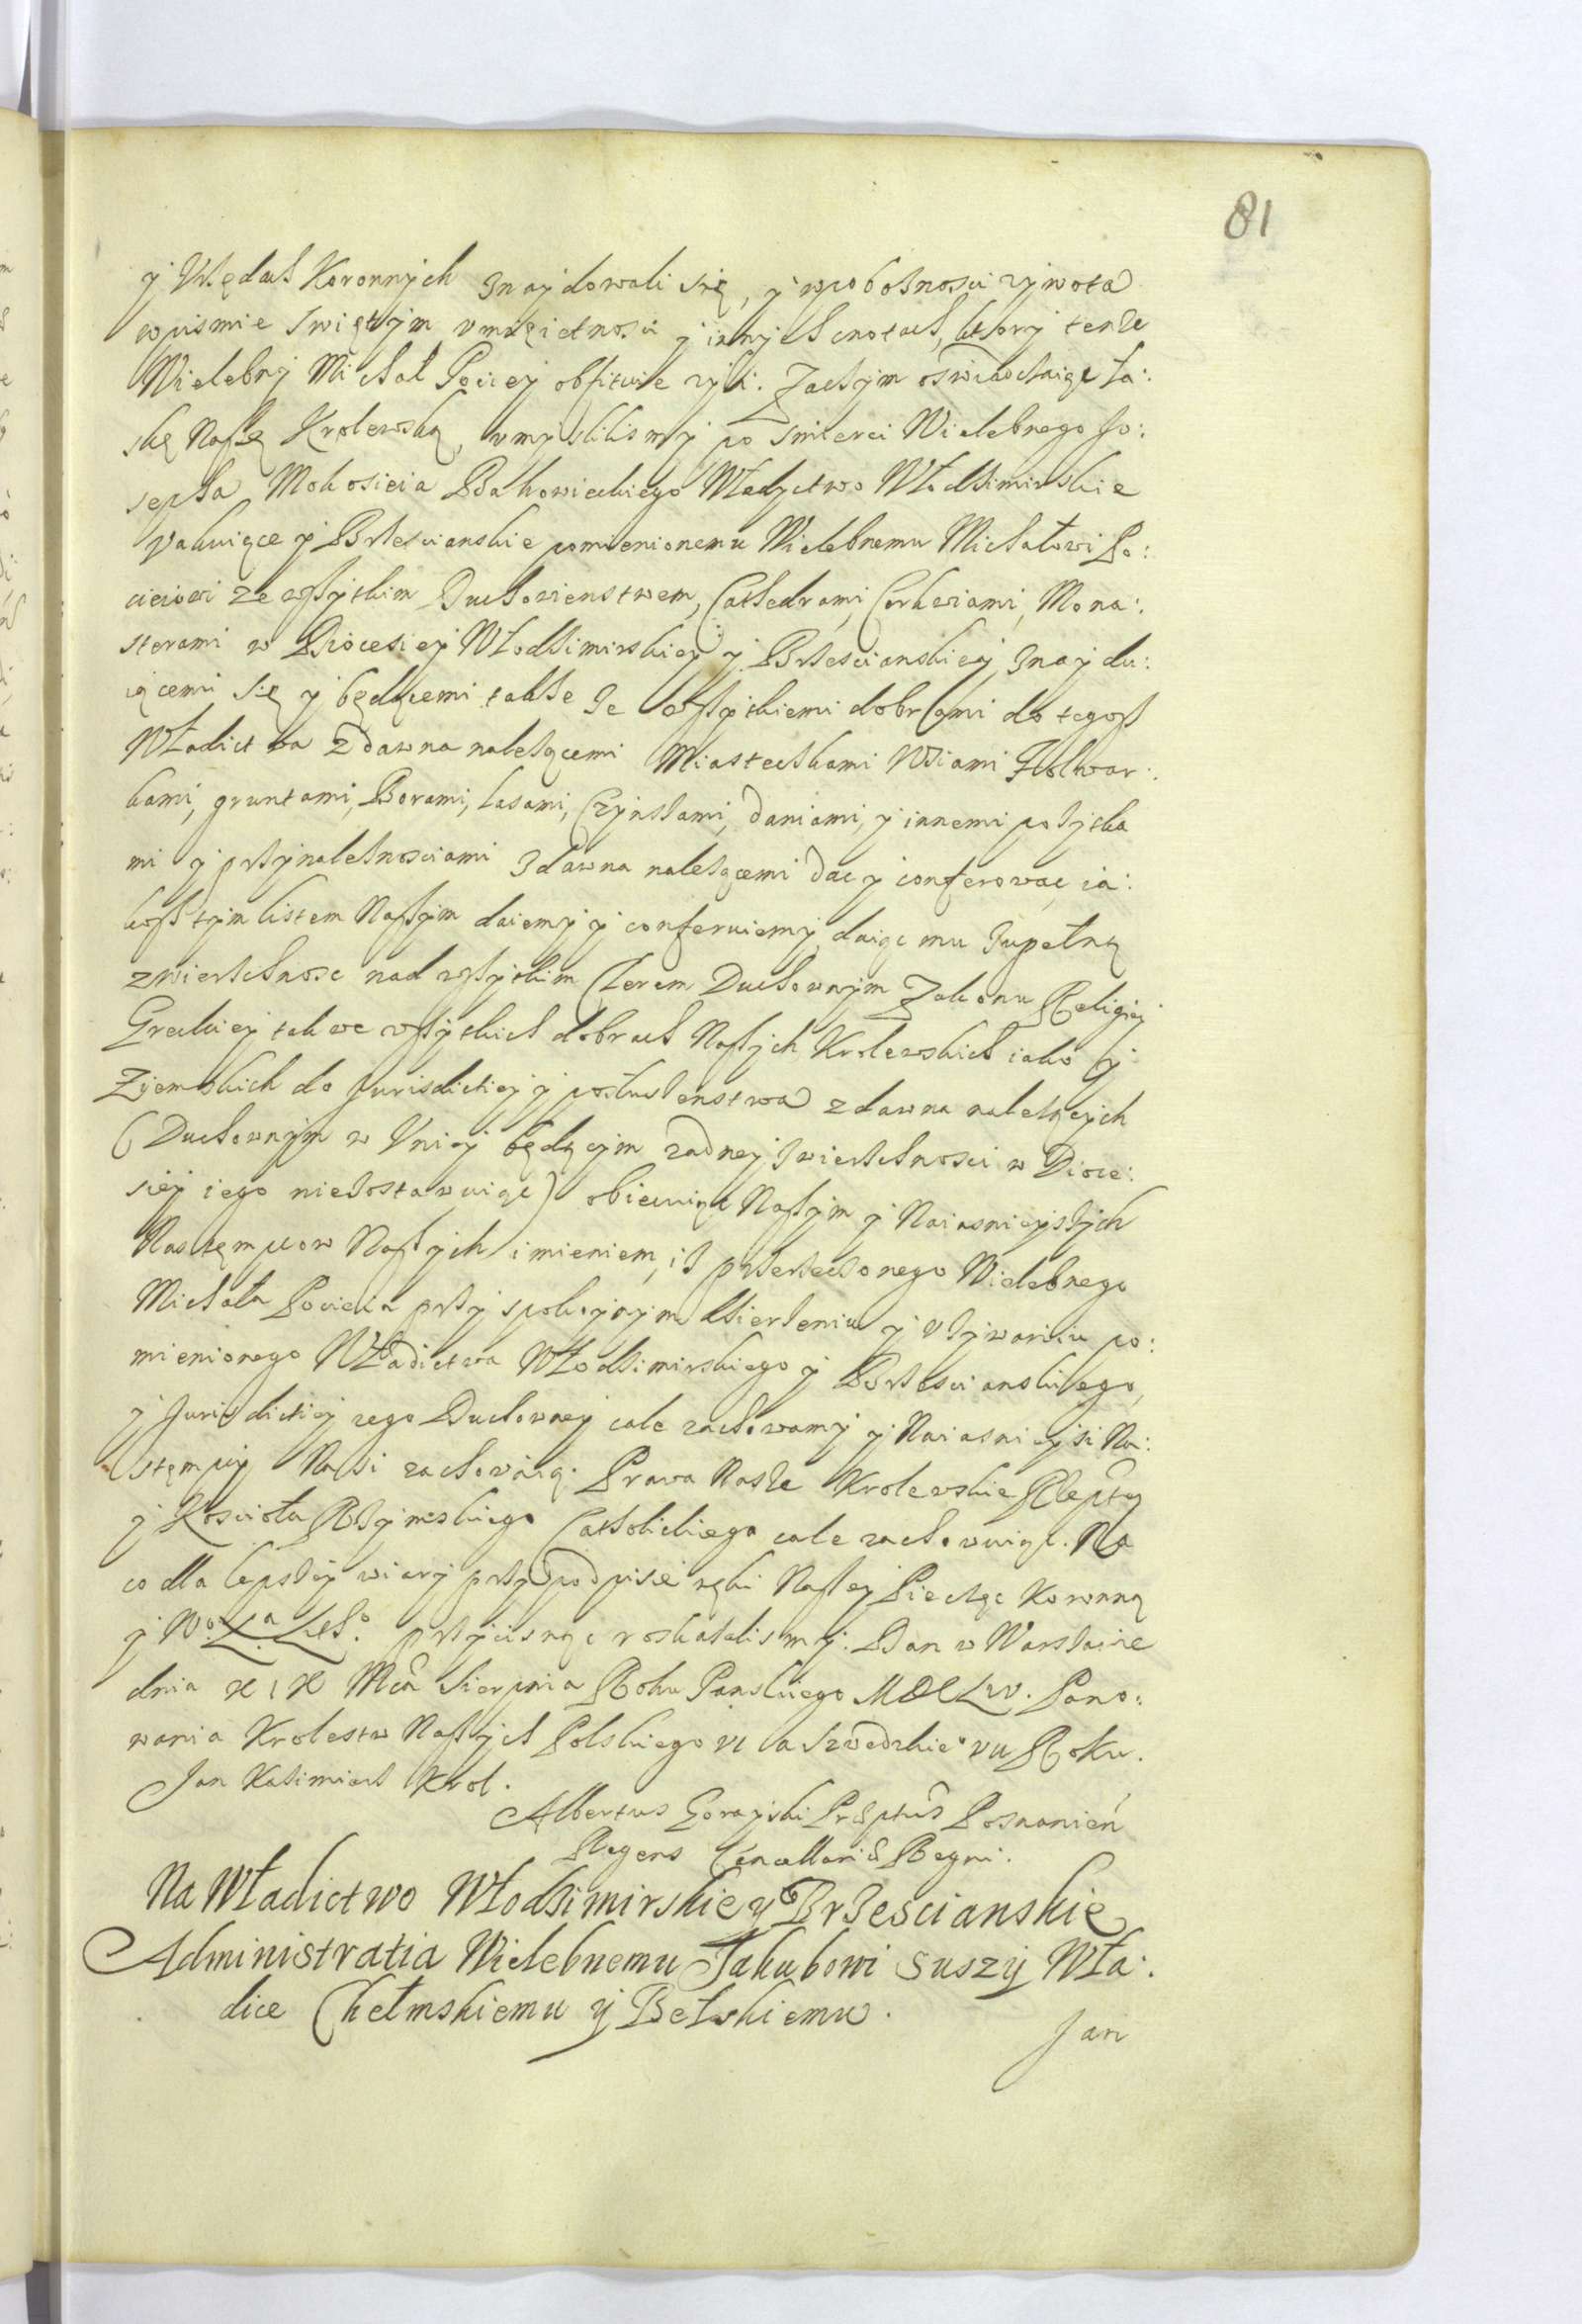 81
y Vrzędach Koronnych znaydowali się, y wpobożnosci zywota
wpismie Swiętym vmieiętnosci y innych cnotach, ktory tenże
Wielebny Michał Pociey obfitwie zyk. Zaczym oswiadczaiąc ła:
skę Naszę Krolewską, vmyslilismy po smierci Wielebnego Jo:
sepha Mokosieia Bakowieckiego Władyctwo Włodzimirskie
vakuiące y Brzescianskie pomienionemu Wielebnemu Michałowi Po:
cieiowi ze wszytkim Duchowienstwem, Cathedrami, Cerkwiami, Mona:.
sterami w Diocesiey Włodzimirskiey y Brzescianskiey znaydu:
iącemi się y będącemi także ze wszytkiemi dobrami do tegosz
Władictwa zdawna należącemi Miasteczkami Wsiami Folwar:.
kami, gruntami, Borami, lasami, Czynszami, daniami, y innemi pożytka
mi y przynależnosciami zdawna należącemi dac y conferowac, ia:
kosz tym listem Naszym daiemy y conferuiemy, daiąc mu zupełną
zwierzchnosc nad wszytkim Clerem Duchownym Zakonu Religiey
Greckiey tak we wszytkich dobrach Naszych Krolewskich iako y
Zyemskich do Jurisdictiey y posłuszenstwa zdawna należących
(Duchownym w Vniey będącym zadney zwierzchnosci w Dioce:
siey iego niezostawuiąc) obiecuiąc Naszym y Naiasnieyszych
Nastęmpcow Naszych imieniem, iż przerzeczonego Wielebnego
Michała Pocieia przy spokoynym dzierżeniu y vżywaniu po:
mienionego Władictwa Włodzimirskiego y Brzescianskiego,
y Jurisdictiey iego Duchowney cale zachowamy y Naiasnieysi Na:
stęmpcy Naszi zachowaią. Prawa Nasze Krolewskie Rzeptey
y Koscioła Rzymskiego Catholickiego cale zachowuiąc. Na
co dla lepszey wiary przy podpisie ręki Naszey Pieczęc Koronną
y Wo. Xa. Litho. przycisnąc roskazalismy. Dan w Warszawie
dnia XIX Mca Sierpnia Roku Panskiego MDCLIV. Pano:
wania Krolestw Naszych Polskiego VI a szwedzkieo VII Roku.
Jan Kazimierz Krol.
Albertus Gorayski Præptus Posnanien
Regens Cancellariæ Regni.
Na Władictwo Włodzimirskie y Brzescianskie
Administratia Wielebnemu Jakubowi Suszy Wła:.
dice Chełmskiemu y Bełskiemu.
Jan